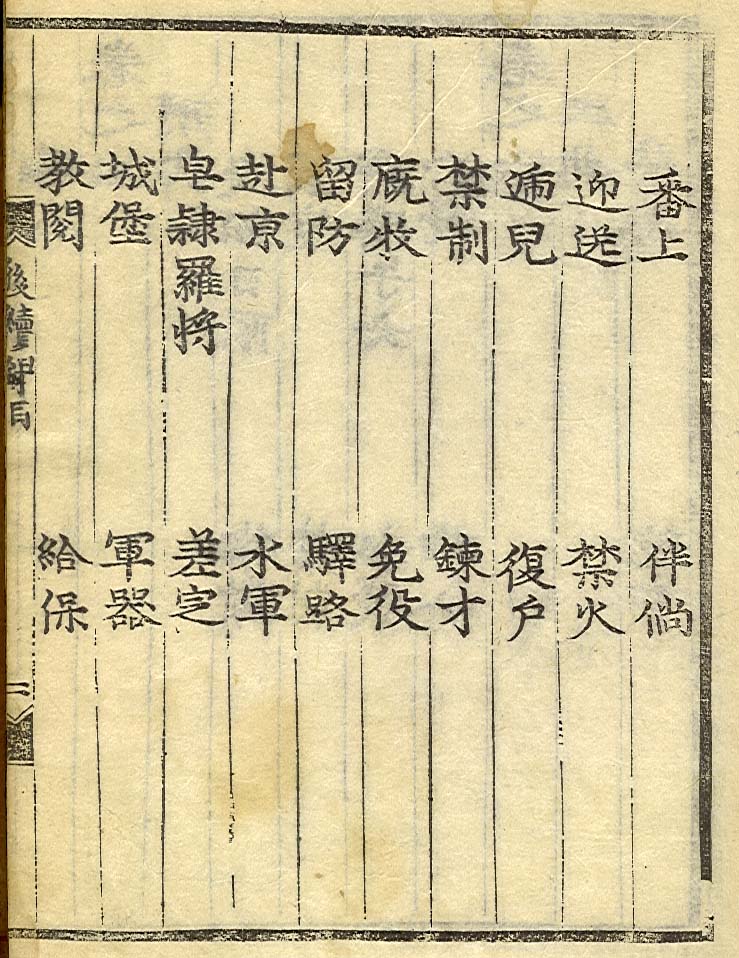 番上 伴倘
迎送 禁火
逓兒 復戶
禁制 鍊才
廐牧 免役
留防 驛路
赴京 水軍
皂隷羅將 差定
城堡 軍器
敎閱 給保
後續錄目 二